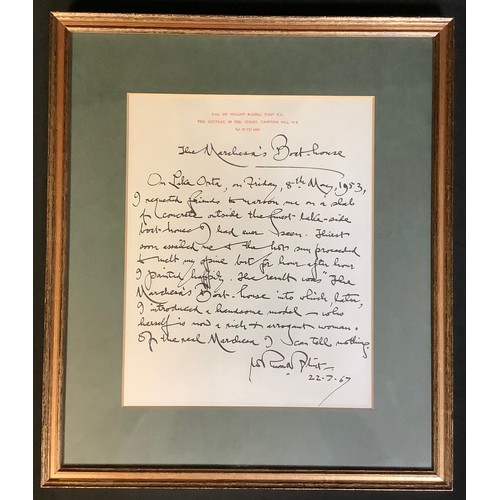 From SIR WILLIAM RUSSELL FLINT R.A.
PEEL COTTAGE, 80 PEEL STREET, CAMPDEN HILL, W.8
The Marchesa's Boat-house
On Lake Orta, on Friday, 8th May, 1953,
I requested friends to maroon me on a slab
of concrete outside the finest lake-side
boat-house I had ever seen. Thirst
soon assailed me & the hot sun proceeded
to melt my spine but for hour after hour
I painted happily. The result was "The
Marchesa's Boat-house into which, later,
I introduced a handsome model – who
herself is now a rich & arrogant woman.
Of the real Marchesa I can tell nothing.
W Russell Flint –
22-7-67